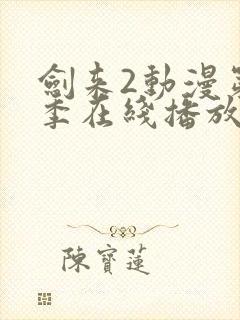 劍来2動漫
季在綫播放
陳寶蓮